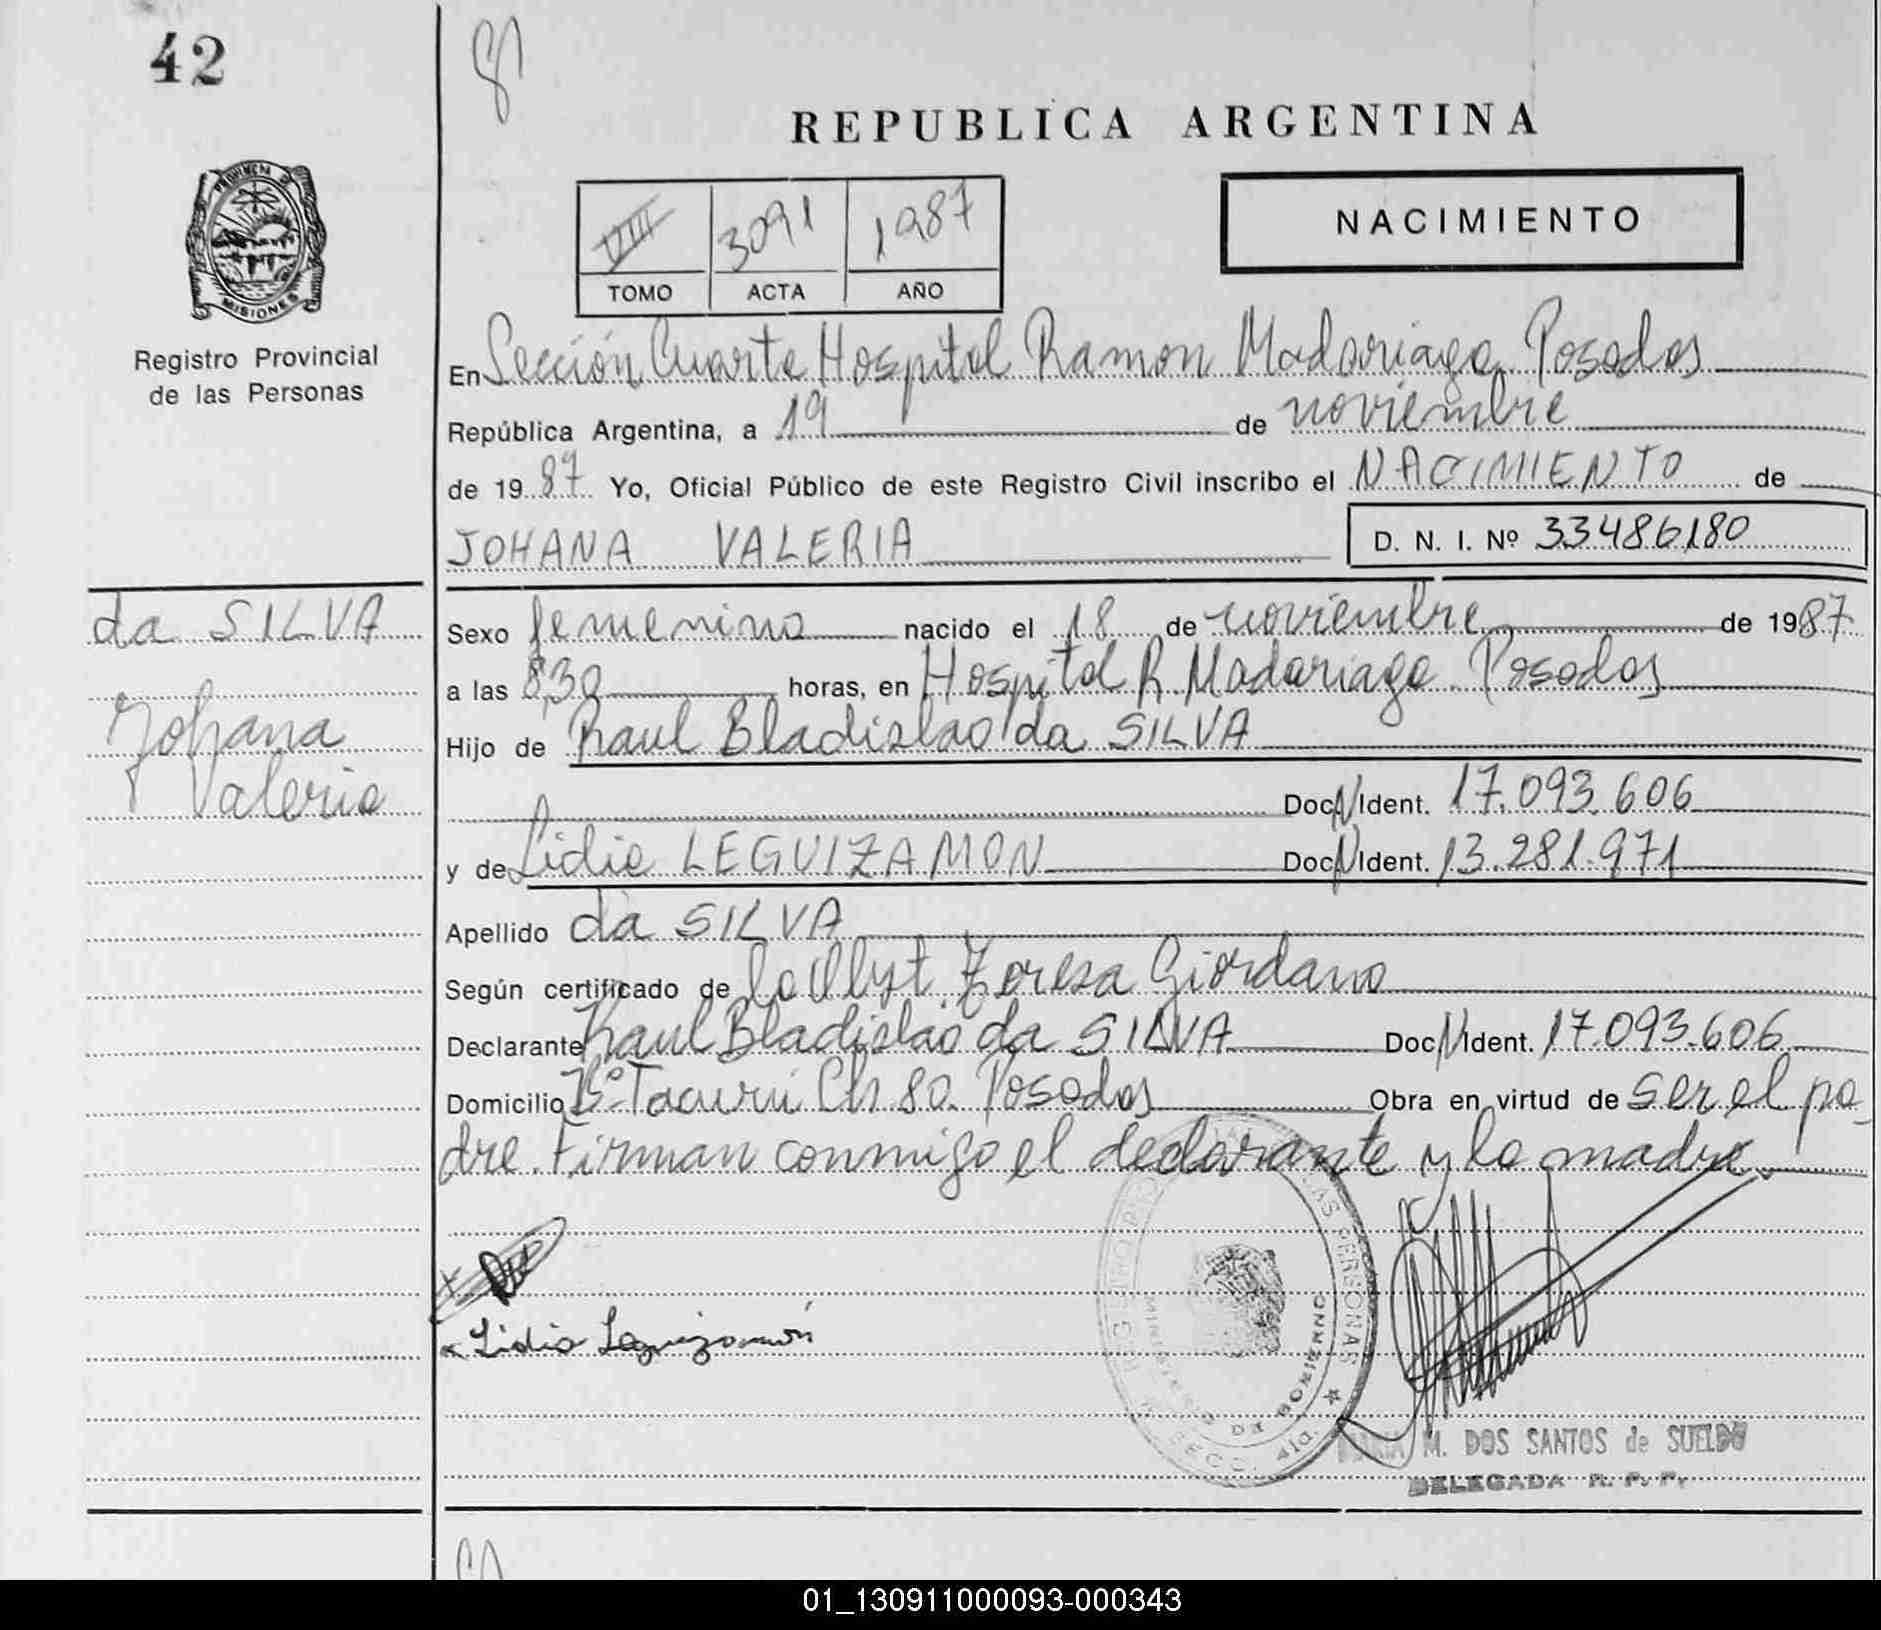 42
REPUBLICA ARGENTINA
PROVINCIA DE
MISIONES
Registro Provincial
de las Personas
VIII 3091 1987
TOMO ACTA AÑO
NACIMIENTO
En Sección Cuarta Hospital Ramon Madariaga Posadas
República Argentina, a 19 de noviembre
de 1987 Yo, Oficial Público de este Registro Civil inscribo el NACIMIENTO de
JOHANA VALERIA D. N. I. Nº 33486180
da SILVA
Johana
Valeria
Sexo femenino nacido el 18 de noviembre de 1987
a las 8,30 horas, en Hospital R. Madariaga Posadas
Hijo de Raul Bladislao da SILVA
Doc N Ident. 17.093.606
y de Lidia LEGUIZAMON Doc N Ident. 13.281.971
Apellido da SILVA
Según certificado de la Obst. Teresa Giordano
Declarante Raul Bladislao da SILVA Doc N Ident. 17.093.606
Domicilio Bº Tacurú Ch 80. Posadas Obra en virtud de ser el pa-
dre. Firman conmigo el declarante y la madre.
x Lidia Leguizamón
REGISTRO LAS PERSONAS
MINISTERIO DE GOBIERNO
SECC. 4ta.
M. DOS SANTOS de SUELDO
DELEGADA R. P. P.
01_130911000093-000343